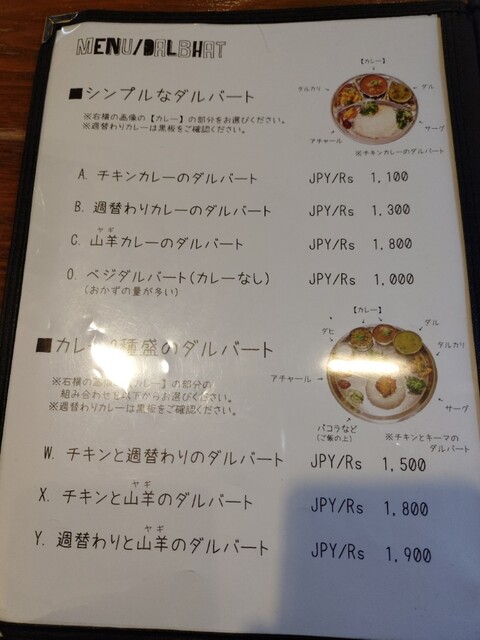 MENU/DALBHAT
■シンプルなダルバート
※右横の画像の【カレー】の部分をお選びください。
※週替わりカレーは黒板をご確認ください。
【カレー】
タルカリ
ダル
アチャール
サーグ
※チキンカレーのダルバート
A. チキンカレーのダルバート JPY/Rs 1,100
B. 週替わりカレーのダルバート JPY/Rs 1,300
ヤギ
C. 山羊カレーのダルバート JPY/Rs 1,800
0. ベジダルバート(カレーなし) JPY/Rs 1,000
(おかずの量が多い)
■カレー2種盛のダルバート
※右横の画像の【カレー】の部分の
組み合わせを以下からお選びください。
※週替わりカレーは黒板をご確認ください。
【カレー】
ダヒ
ダル
タルカリ
アチャール
サーグ
パコラなど
(ご飯の上)
※チキンとキーマの
ダルバート
W. チキンと週替わりのダルバート JPY/Rs 1,500
ヤギ
X. チキンと山羊のダルバート JPY/Rs 1,800
ヤギ
Y. 週替わりと山羊のダルバート JPY/Rs 1,900